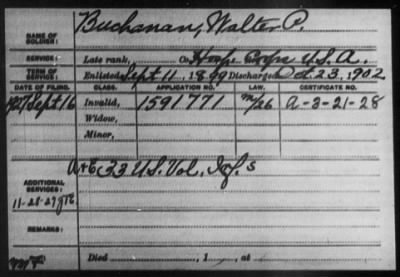 NAME OF SOLDIER: Buchanan, Walter P.
SERVICE: Late rank, Co. Hosp. Corps U.S.A.
TERM OF SERVICE: Enlisted Sept 11, 1899 Discharged Oct. 23, 1902
DATE OF FILING. CLASS. APPLICATION NO. LAW. CERTIFICATE NO.
1927 Sept 16 Invalid, 1591771 A-3-21-28
Widow,
Minor,
ADDITIONAL SERVICES: 33 U.S. Vol. Inf.
11-28-27
REMARKS:
Died , 1 , at